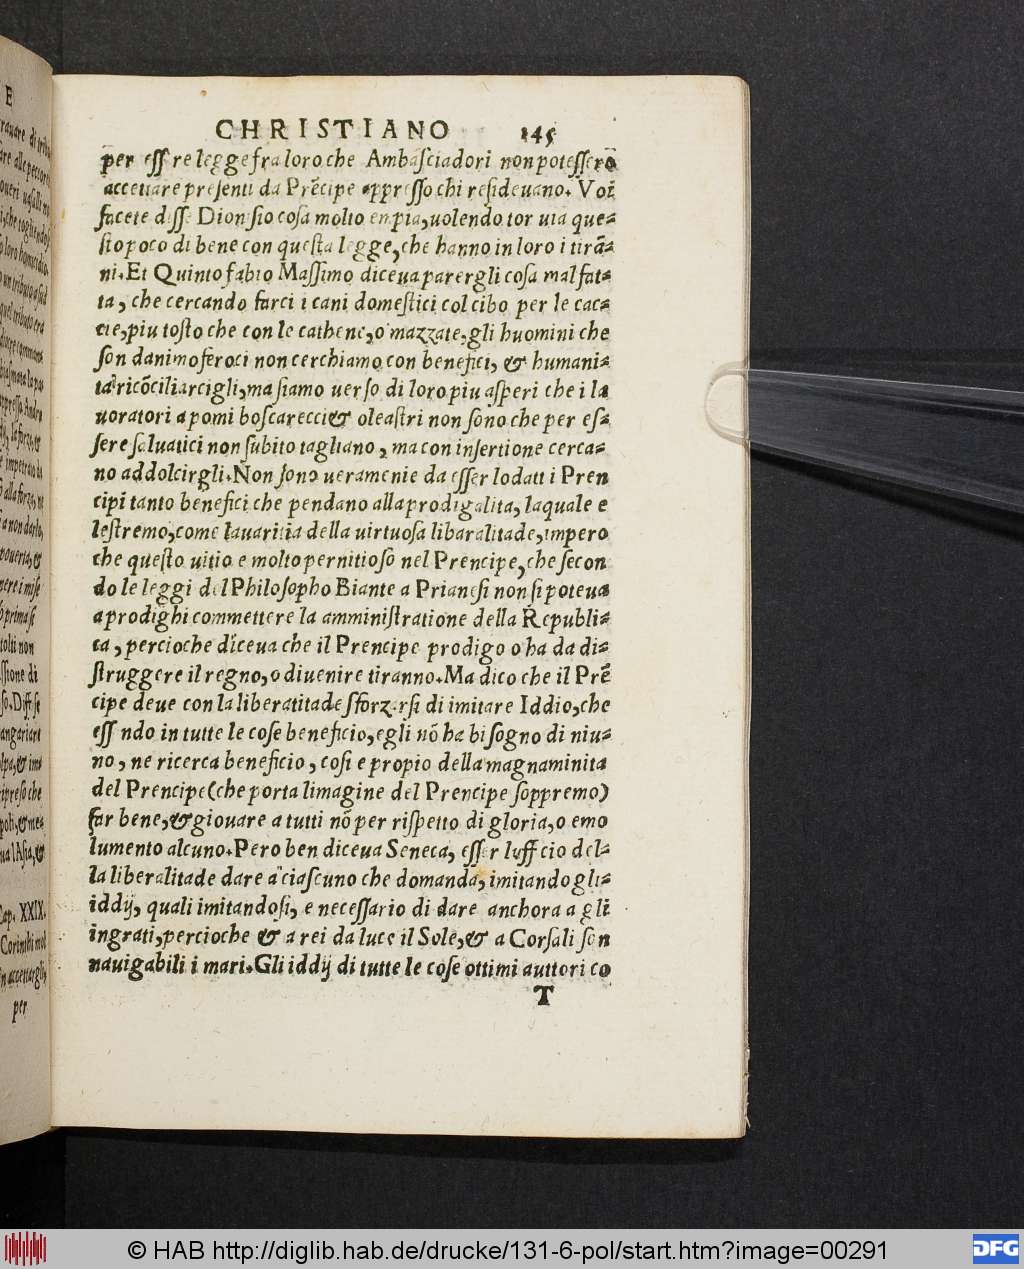 CHRISTIANO 145
per essere legge fra loro che Ambasciadori non potessero
accettare presenti da Prēcipe appresso chi resideuano. Voi
facete disse Dionisio cosa molto empia, uolendo tor uia que-
sto poco di bene con questa legge, che hanno in loro i tirā-
ni. Et Quinto fabio Massimo diceua parergli cosa mal fat-
ta, che cercando farci i cani domestici col cibo per le cac-
cie, piu tosto che con le cathene, o mazzate, gli huomini che
son danimo feroci non cerchiamo con benefici, & humani-
ta ricōciliarcigli, ma siamo uerso di loro piu asperi che i la
uoratori a pomi boscarecci & oleastri non sono che per es-
sere saluatici non subito tagliano, ma con insertione cerca-
no addolcirgli. Non sono ueramente da esser lodatti i Pren
cipi tanto benefici che pendano alla prodigalita, laquale e
lestremo, come lauaritia della uirtuosa libaralitade, impero
che questo uitio e molto pernitioso nel Prencipe, che secon
do le leggi del Philosopho Biante a Prianesi non si poteua
a prodighi commettere la amministratione della Republi-
ca, percioche diceua che il Prencipe prodigo o ha da di-
struggere il regno, o diuenire tiranno. Ma dico che il Prē
cipe deue con la liberatitade sforzarsi di imitare Iddio, che
essendo in tutte le cose beneficio, egli nō ha bisogno di niu-
no, ne ricerca beneficio, cosi e propio della magnaminita
del Prencipe (che porta limagine del Prencipe soppremo)
far bene, & giouare a tutti nō per rispetto di gloria, o emo
lumento alcuno. Pero ben diceua Seneca, esser lufficio del-
la liberalitade dare a ciascuno che domanda, imitando gli-
iddij, quali imitandosi, e necessario di dare anchora a gli
ingrati, percioche & a rei da luce il Sole, & a Corsali son
nauigabili i mari. Gli iddij di tutte le cose ottimi auttori co
T
© HAB http://diglib.hab.de/drucke/131-6-pol/start.htm?image=00291
DFG